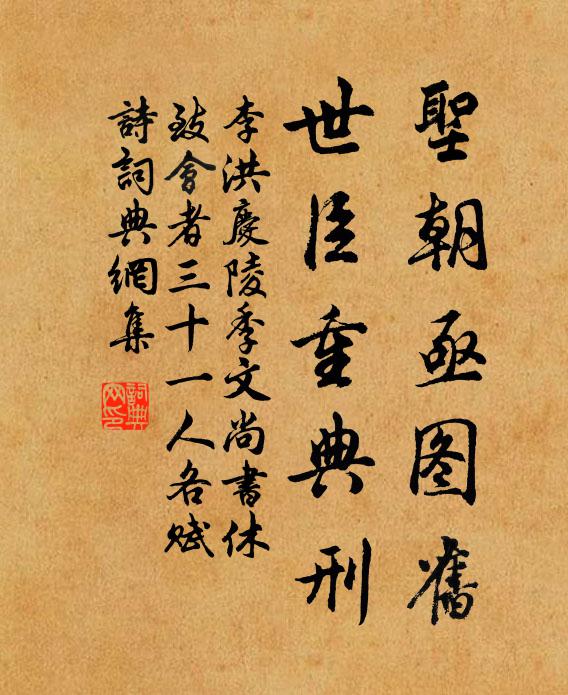 聖朝亟图舊
世臣重典刑
李洪慶陵季文尚書休
致會者三十一人各赋
詩詞典網集
詞典网印